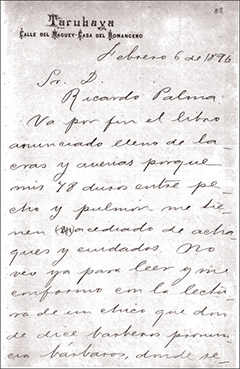 82
Tacubaya
CALLE DEL MAGUEY-CASA DEL ROMANCERO
Febrero 6 de 1896
Sr. D.
Ricardo Palma
Va por fin el libro
anunciado lleno de la
cras y averias porque
mis 78 duros entre pe
cho y pulmon me tie-
nen acediado de acha
ques y cuidados. No
veo ya para leer y me
conformo con la lectu
ra de un chico que don
de dice barberos pronun
cia bárbaros, donde se-